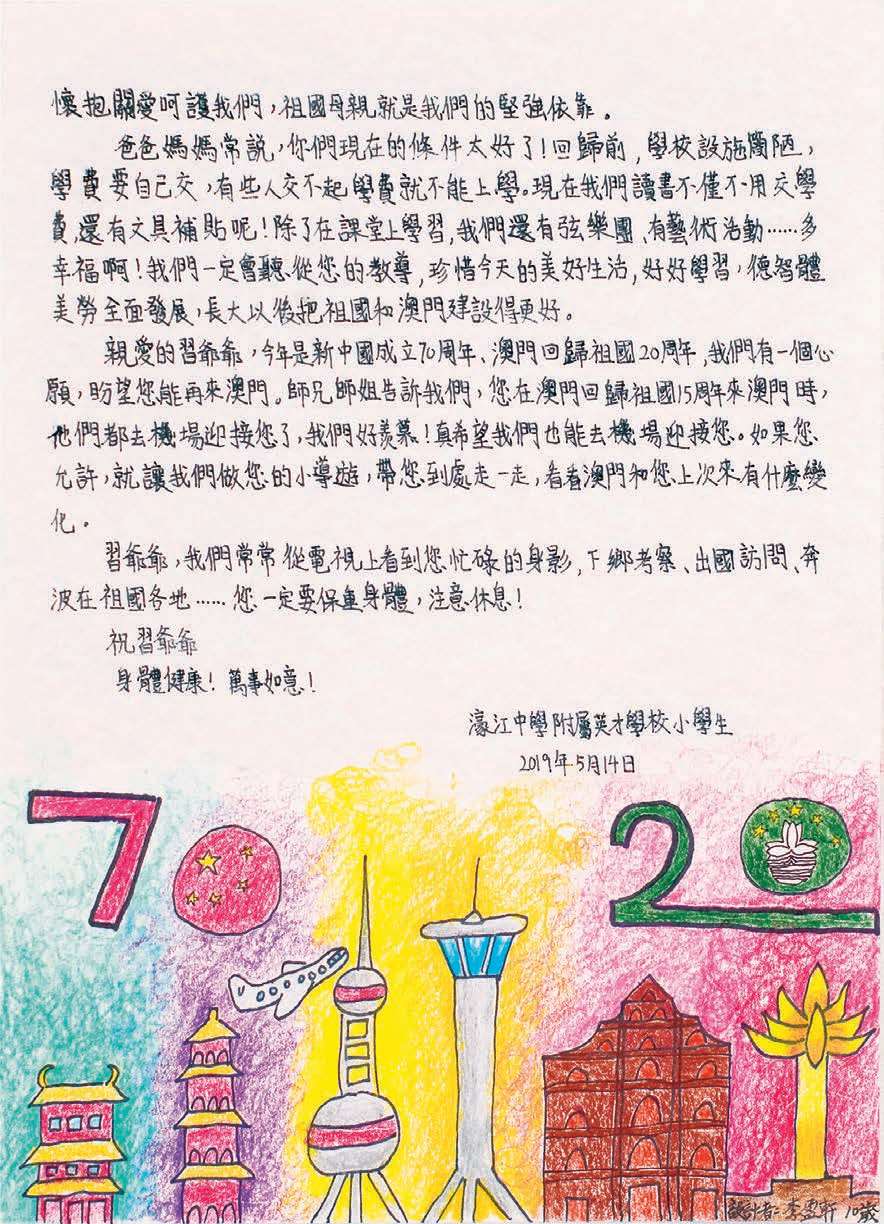 懷抱關愛呵護我們，祖國母親就是我們的堅強依靠。
爸爸媽媽常說，你們現在的條件太好了！回歸前，學校設施簡陋，
學費要自己交，有些人交不起學費就不能上學。現在我們讀書不僅不用交學
費，還有文具補貼呢！除了在課堂上學習，我們還有弦樂團、有藝術活動……多
幸福啊！我們一定會聽從您的教導，珍惜今天的美好生活，好好學習，德智體
美勞全面發展，長大以後把祖國和澳門建設得更好。
親愛的習爺爺，今年是新中國成立70周年、澳門回歸祖國20周年，我們有一個心
願，盼望您能再來澳門。師兄師姐告訴我們，您在澳門回歸祖國15周年來澳門時，
他們都去機場迎接您了，我們好羨慕！真希望我們也能去機場迎接您。如果您
允許，就讓我們做您的小導遊，帶您到處走一走，看看澳門和您上次來有什麼變
化。
習爺爺，我們常常從電視上看到您忙碌的身影，下鄉考察、出國訪問、奔
波在祖國各地……您一定要保重身體，注意休息！
祝習爺爺
身體健康！萬事如意！
濠江中學附屬英才學校小學生
2019年5月14日
70 20
設計者：李雯軒 10歲